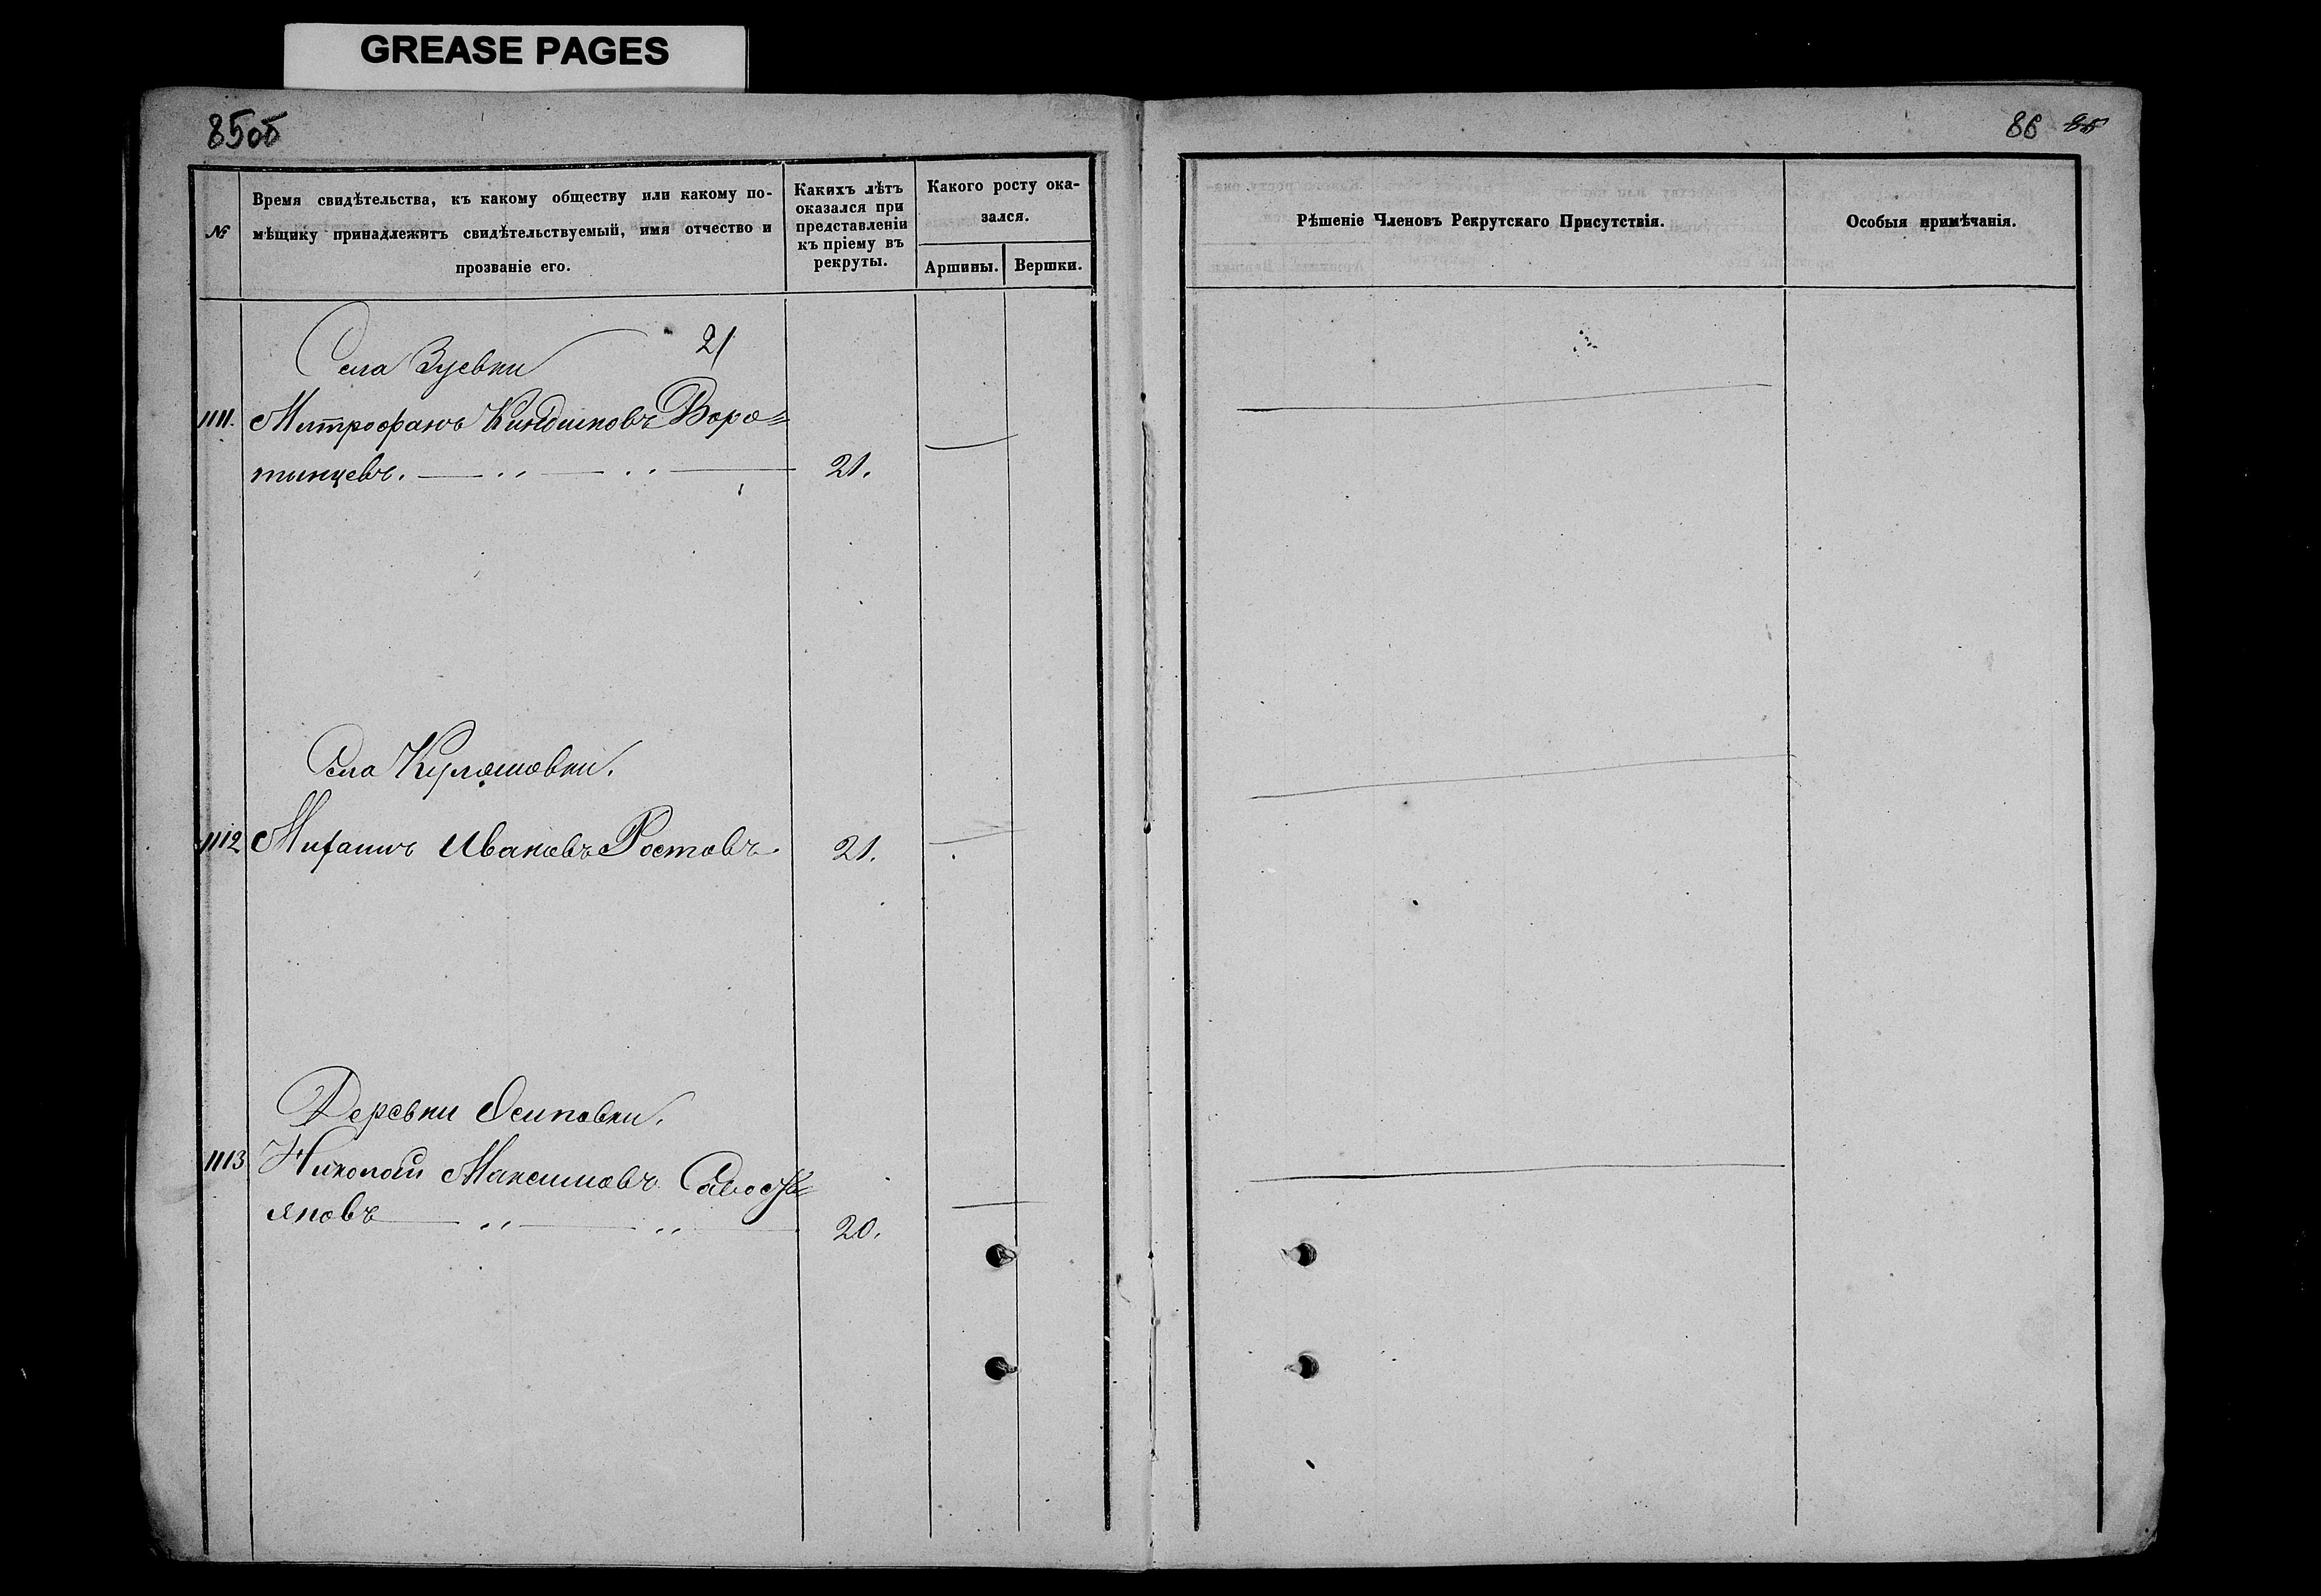 GREASE PAGES
85об
86 85
№
Время свидѣтельства, къ какому обществу или какому по-
мѣщику принадлежитъ свидѣтельствуемый, имя отчество и
прозваніе его.
Какихъ лѣтъ
оказался при
представленіи
къ пріему въ
рекруты.
Какого росту ока-
зался.
Аршины. Вершки.
Рѣшеніе Членовъ Рекрутскаго Присутствія.
Особыя примѣчанія.
21
Села Зуевки
1111. Митрофанъ Киндиновъ Воро=
тынцевъ. 21.
Села Кулешовки.
1112 Михаилъ Ивановъ Ростовъ 21.
Деревни Осиповки.
1113 Николай Максимовъ Савость=
яновъ 20.